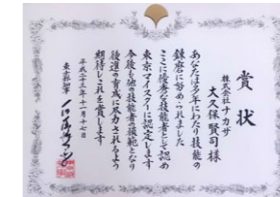 賞状
株式会社ナカサ
大久保賢司様
あなたは多年にわたり技能の
錬磨に努められました
ここに優秀な技能者として認め
東京マイスターに認定します
今後も他の技能者の模範となり
後進の育成に尽力されるよう
期待しこれを賞します
平成二十三年十一月十七日
東京都知事